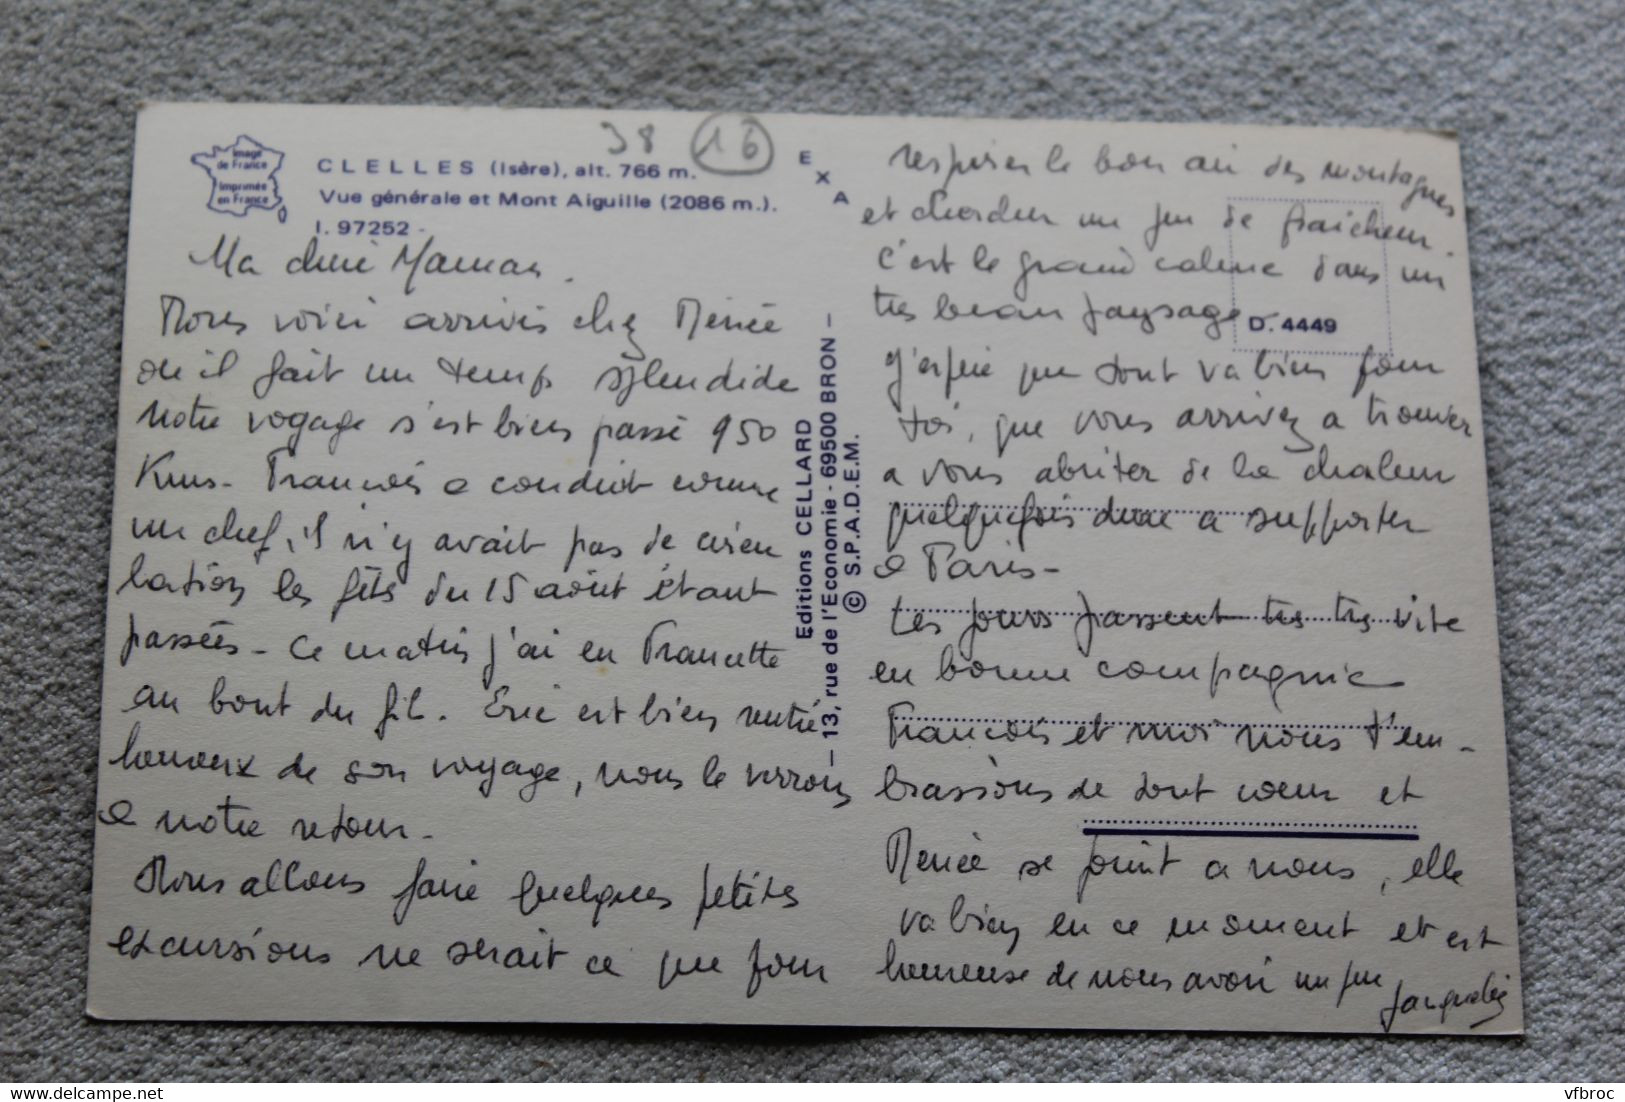 Image
de France
Imprimée
en France
CLELLES (Isère), alt. 766 m.
Vue générale et Mont Aiguille (2086 m.).
I. 97252 -
38 16
EXA
Ma chère Maman.
Nous voici arrivés chez Renée
où il fait un temps splendide
notre voyage s'est bien passé 950
Kms - François a conduit comme
un chef, il n'y avait pas de circu
lation les fêtes du 15 août étant
passées - Ce matin j'ai eu Francette
au bout du fil. Eric est bien rentré
heureux de son voyage, nous le verrons
à notre retour -
Nous allons faire quelques petites
excursions ne serait ce que pour
Editions CELLARD
— 13, rue de l'Economie - 69500 BRON —
© S.P.A.D.E.M.
respirer le bon air des montagnes
et chercher un peu de fraicheur.
C'est le grand calme dans un
très beau paysage
D. 4449
J'espère que tout va bien pour
toi, que vous arrivez a trouver
a vous abriter de la chaleur
quelquefois dure a supporter
a Paris -
Les jours passent très très vite
en bonne compagnie
François et moi nous t'em -
brassons de tout cœur et
Renée se joint a nous, elle
va bien en ce moment et est
heureuse de nous avoir un peu
Jacqueline
delcampe.net
vfbroc